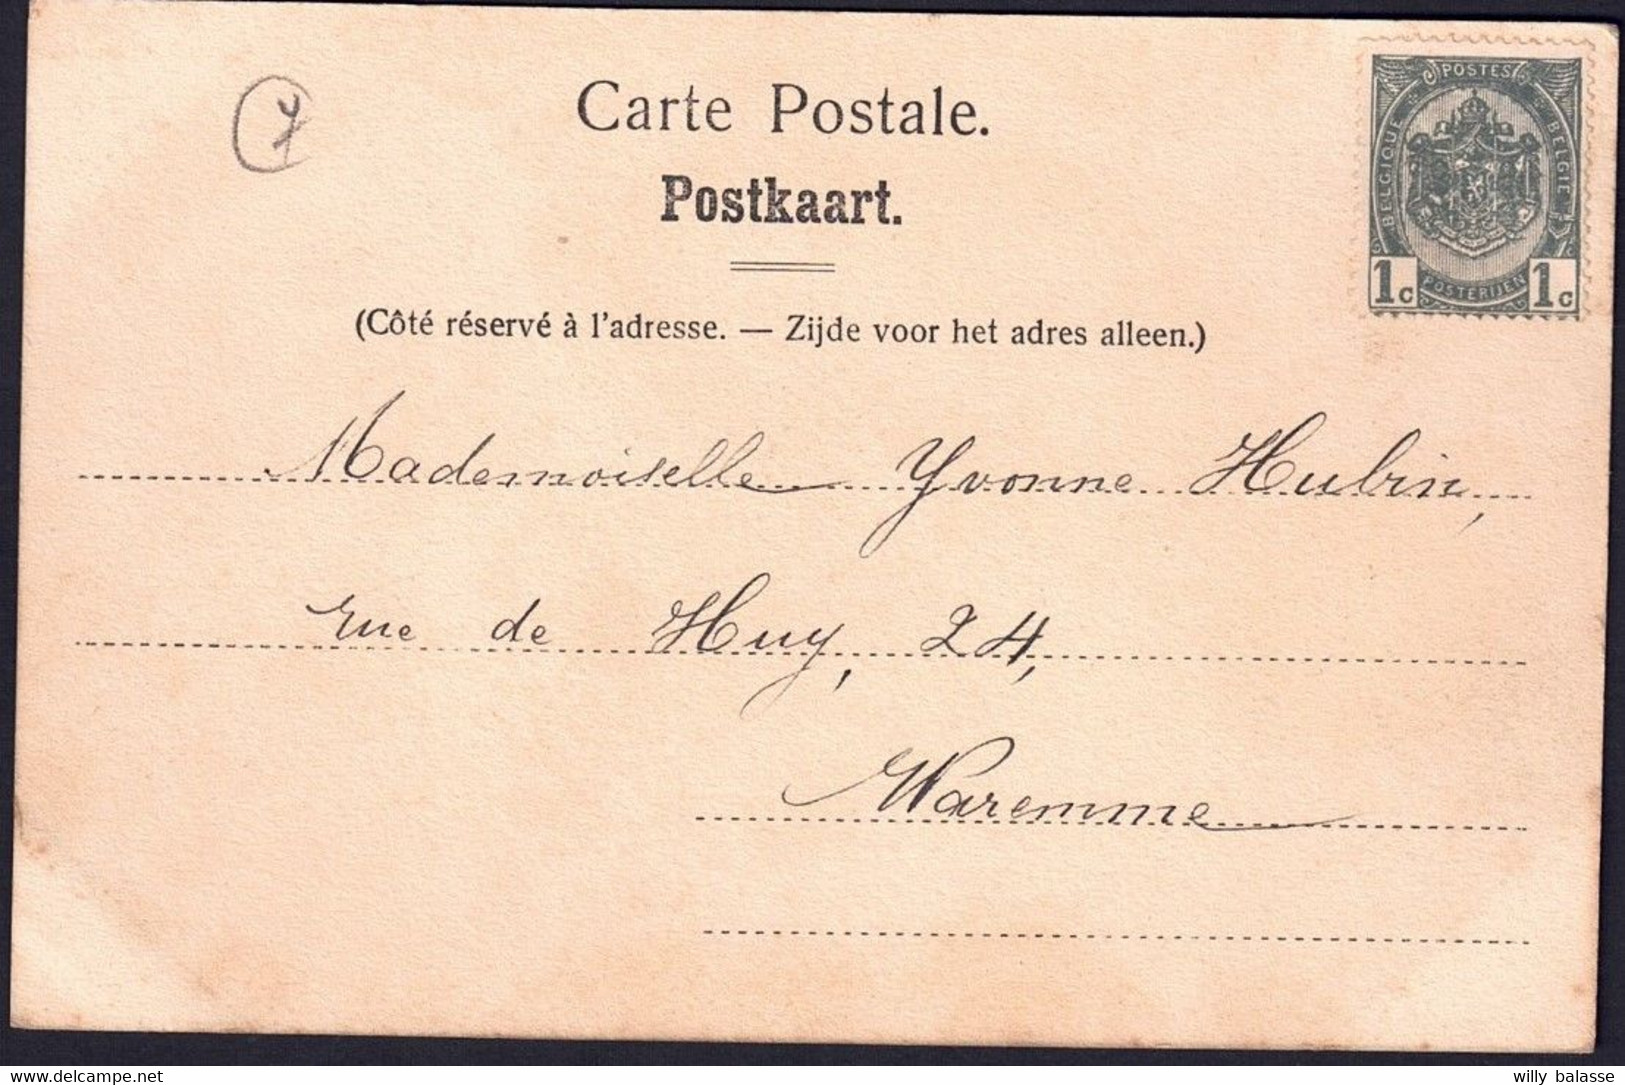 7
Carte Postale.
Postkaart.
POSTES
BELGIQUE
BELGIE
1c
POSTERIJEN
1c
(Côté réservé à l'adresse. — Zijde voor het adres alleen.)
Mademoiselle Yvonne Hubin,
rue de Huy, 24,
Waremme
www.delcampe.net
willy balasse